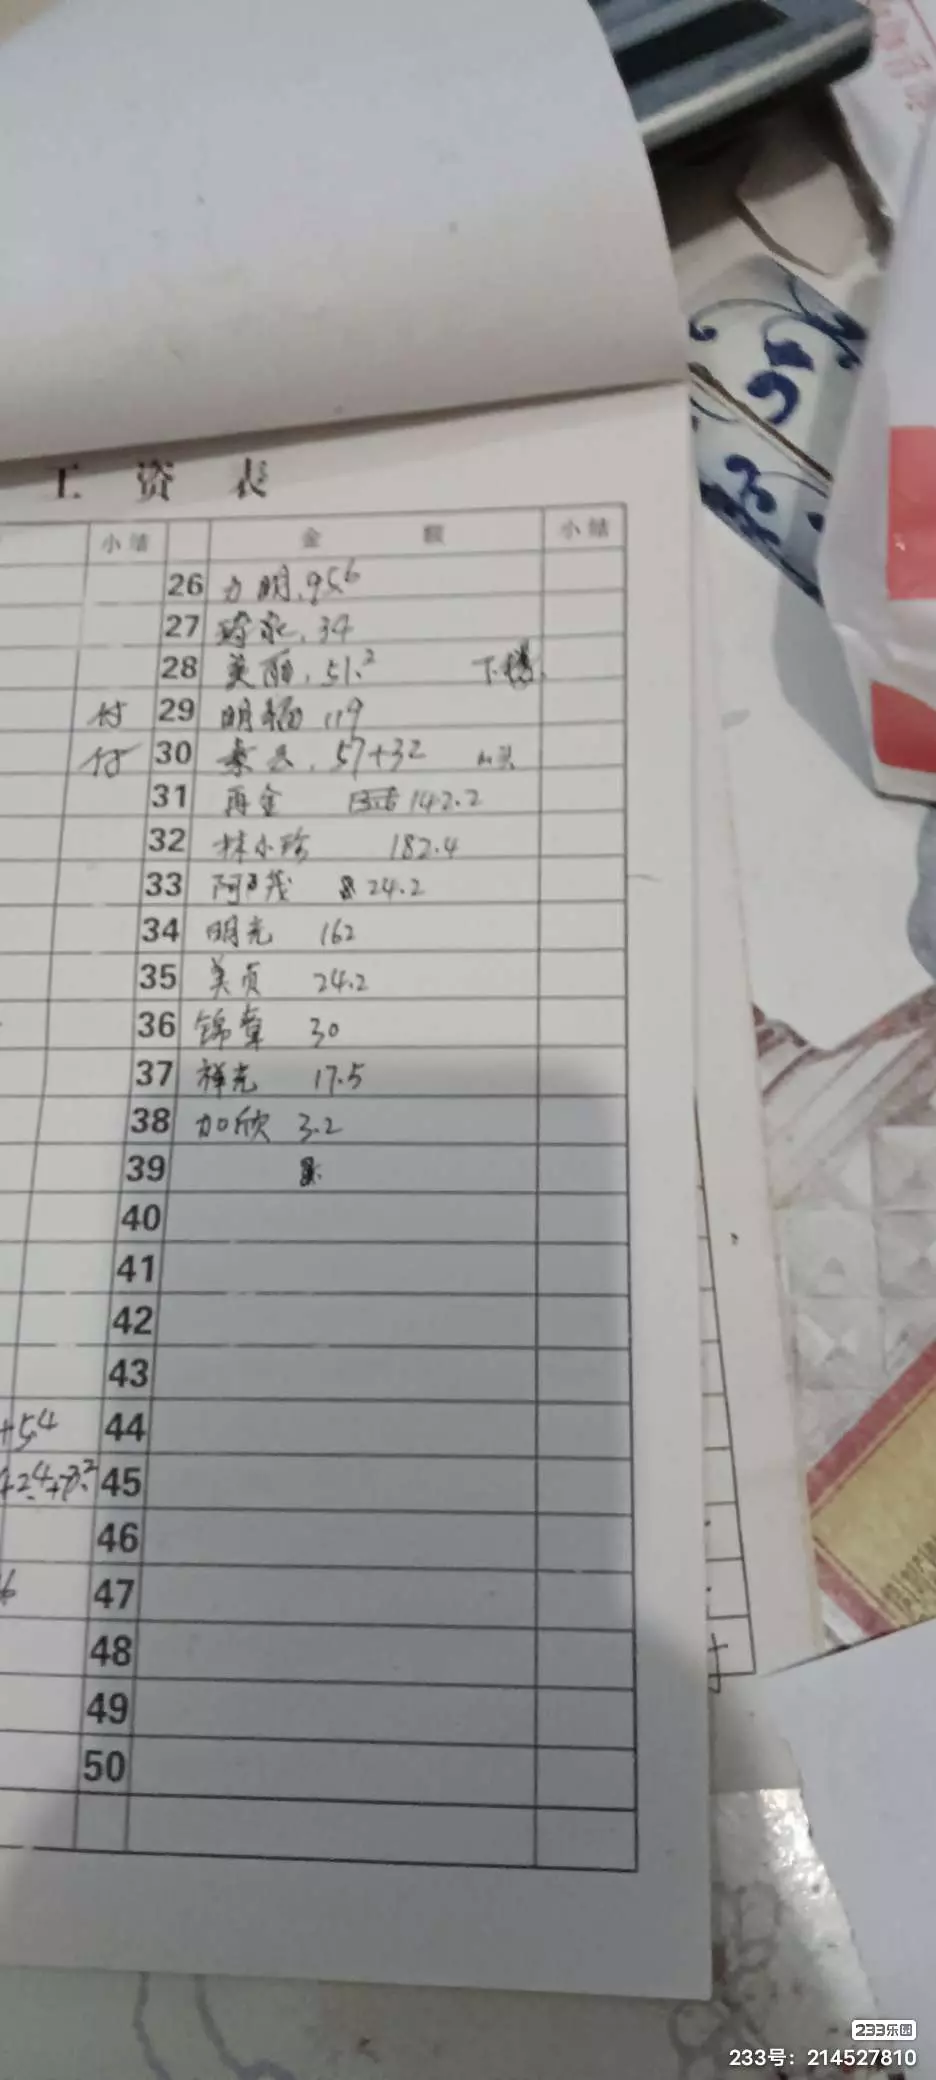 工资表
小结 金额 小结
26 力明.95.6
27 琦永.34
28 美丽.51.2 下楼
付 29 明福 119
付 30 素云.57+32 山头
31 再金 142.2
32 林小珍 182.4
33 阿茂 24.2
34 明光 162
35 美贞 24.2
36 锦章 30
37 祥光 17.5
38 加欣 3.2
39
40
41
42
43
+5.4 44
42.4+8.2 45
46
6 47
48
49
50
233乐园
233号：214527810